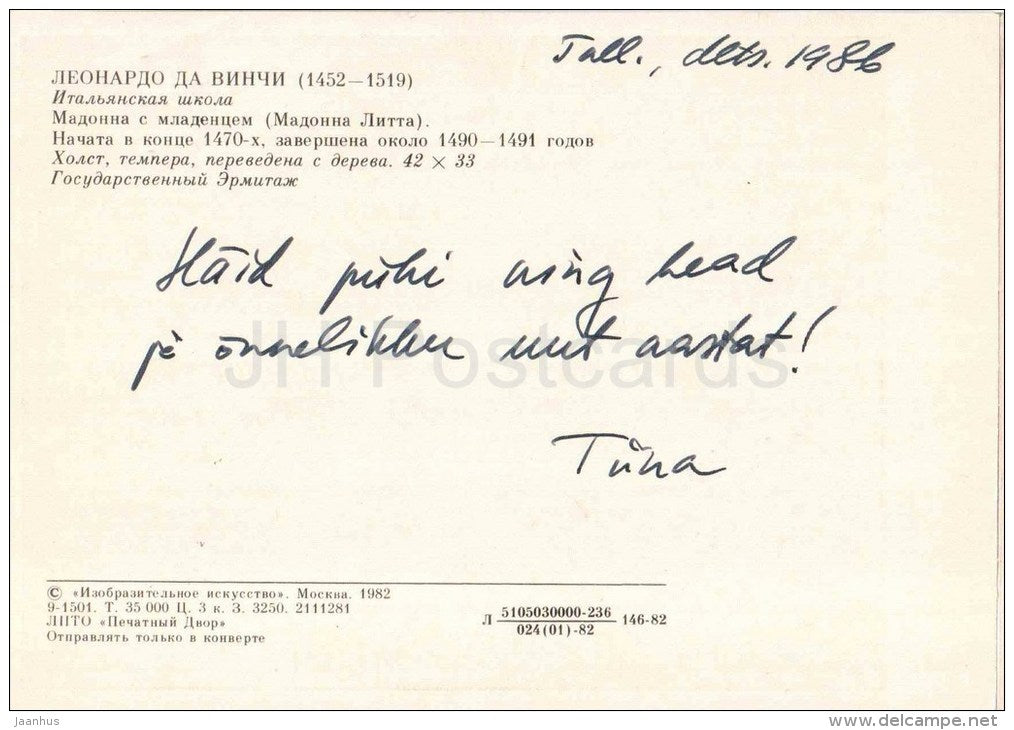 Tall., dets. 1986
ЛЕОНАРДО ДА ВИНЧИ (1452—1519)
Итальянская школа
Мадонна с младенцем (Мадонна Литта).
Начата в конце 1470-х, завершена около 1490—1491 годов
Холст, темпера, переведена с дерева. 42 × 33
Государственный Эрмитаж
Häid pühi ning head
ja õnnelikku uut aastat!
Tiina
JH Postcards
© «Изобразительное искусство». Москва. 1982
9-1501. Т. 35 000 Ц. 3 к. З. 3250. 2111281
ЛПТО «Печатный Двор»
Отправлять только в конверте
Л 5105030000-236 146-82
024(01)-82
jaanhus
www.delcampe.net